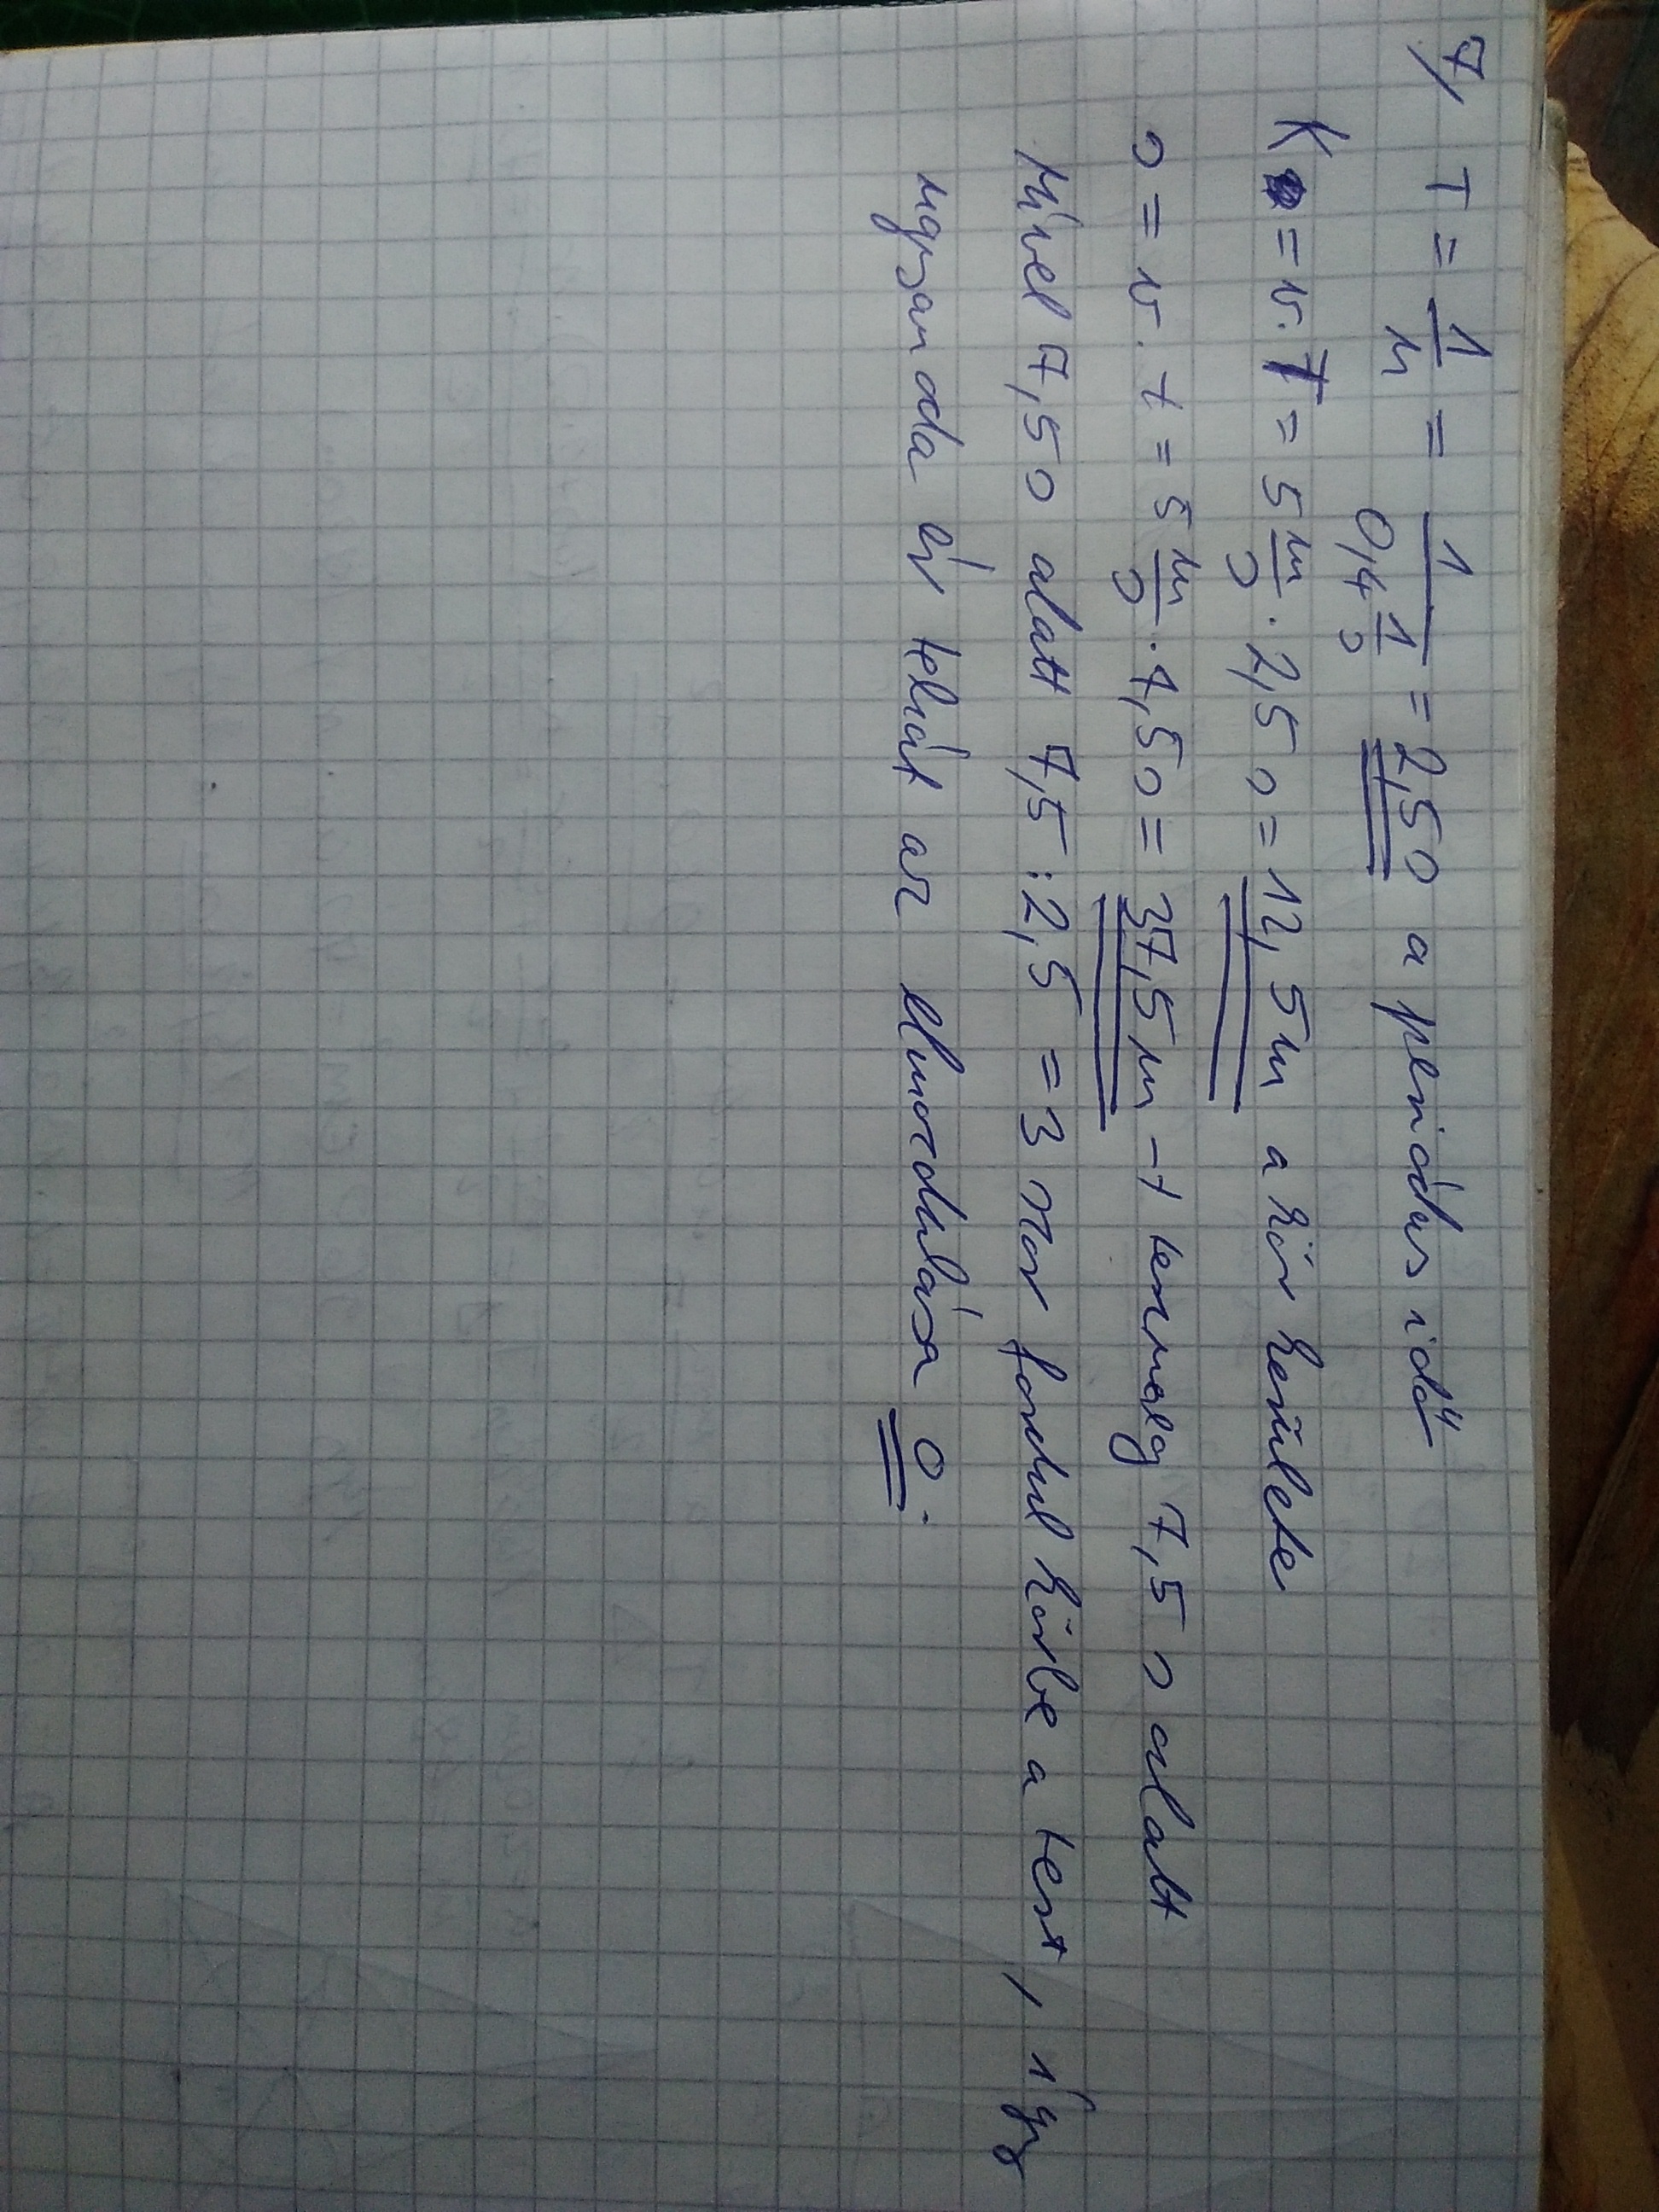 7, T = 1/n = 1/(0,4 1/s) = 2,5 s a periódus idő
K = v · T = 5 m/s · 2,5 s = 12,5 m a kör kerülete
s = v · t = 5 m/s · 7,5 s = 37,5 m -t tesz meg 7,5 s alatt
Mivel 7,5 s alatt 7,5 : 2,5 = 3 szor fordul körbe a test, így
ugyanoda ér tehát az elmozdulása 0.